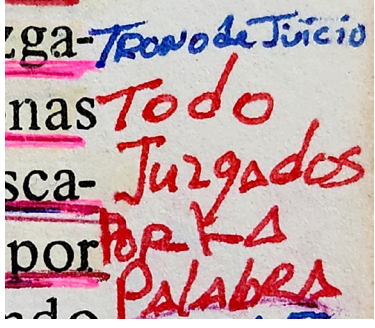 zga- TRONO de Juicio
nas Todo
sca- Juzgados
por Por LA
Palabra